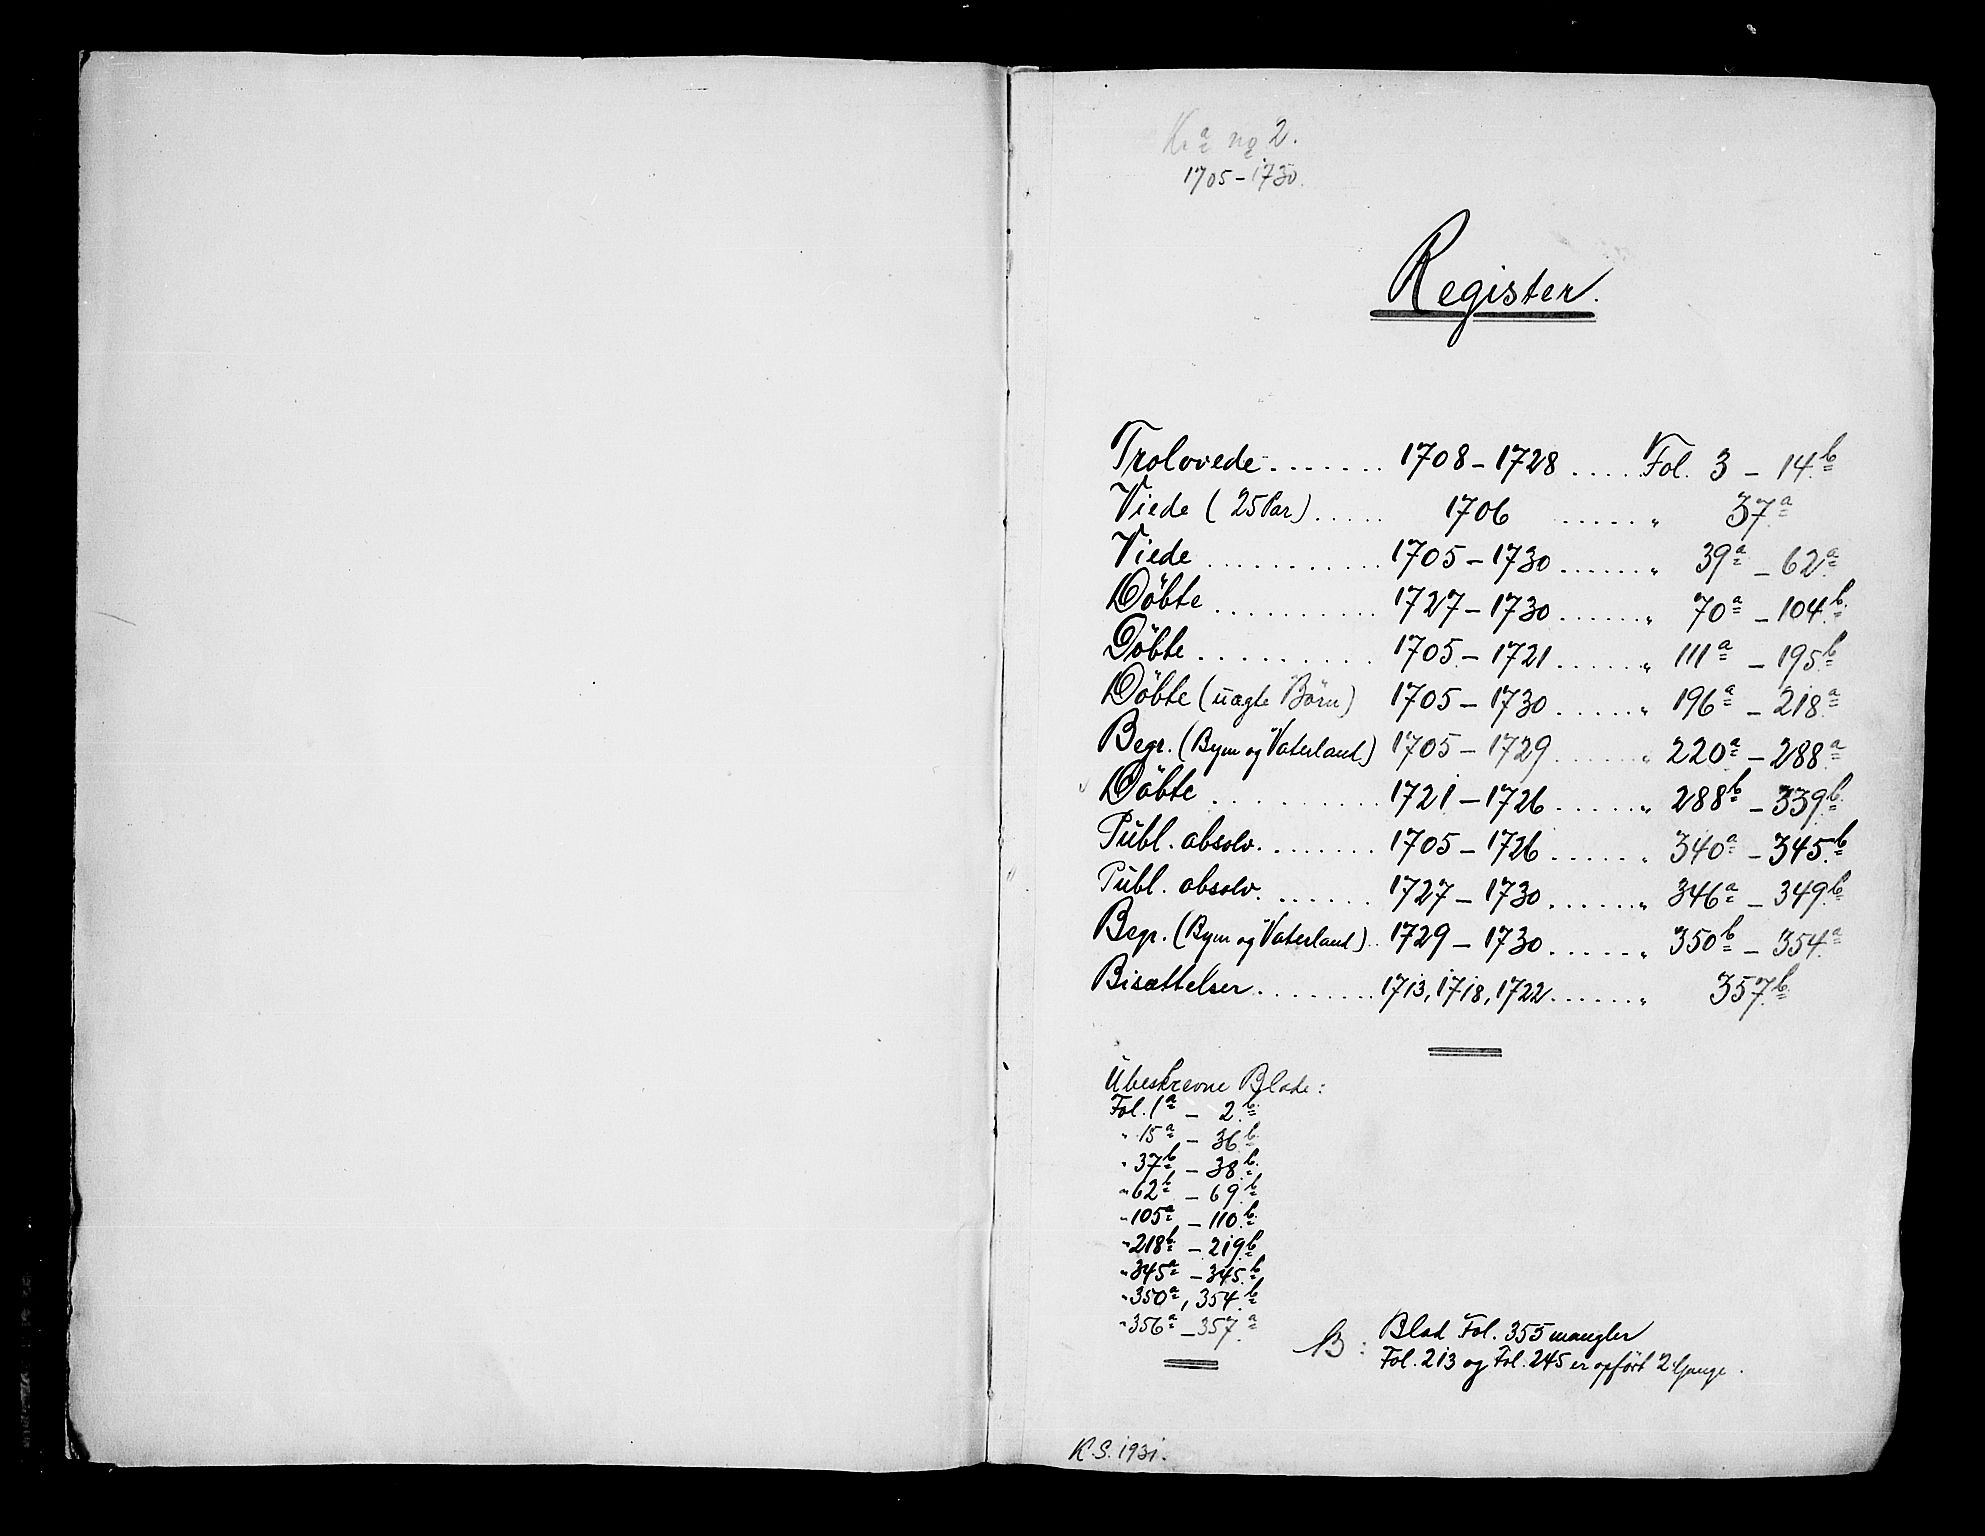 Kr.a no 2.
1705-1730.
Register.
Trolovede....... 1708-1728 .... Fol. 3 - 14b
Viede (25 Par)..... 1706 ...... " 37a
Viede ........... 1705-1730 ...... " 39a - 62a
Döbte .......... 1727-1730 ...... " 70a - 104b
Döbte .......... 1705-1721 ...... " 111a - 195b
Döbte (uægte Börn) 1705-1730 ...... " 196a - 218a
Begr. (Bym og Vaterland) 1705-1729 ...... " 220a - 288a
Döbte .......... 1721-1726 ...... " 288b - 339b
Publ. absolv. ....... 1705-1726 ...... " 340a - 345b
Publ. absolv. ...... 1727-1730 ...... " 346a - 349b
Begr. (Bym og Vaterland).. 1729-1730 ...... " 350b - 354a
Bisættelser ........ 1713, 1718, 1722 ...... " 357b
Ubeskrevne Blade:
Fol. 1a - 2b
" 15a - 36b
" 37b - 38b
" 62b - 69b
" 105a - 110b
" 218b - 219b
" 345a - 345b
" 350a, 354b
" 356a - 357a
NB: Blad Fol. 355 mangler
Fol. 213 og Fol. 245 er opfört 2 Gange.
K.S. 1931.